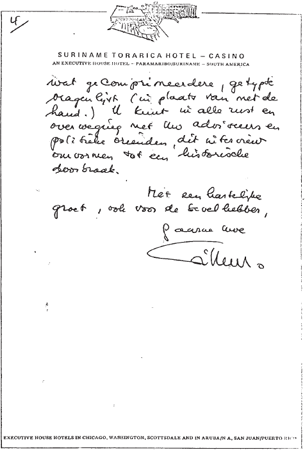 4/
SURINAME TORARICA HOTEL – CASINO
AN EXECUTIVE HOUSE HOTEL – PARAMARIBO/SURINAME – SOUTH AMERICA
wat gecomprimeerdere, getypte
vragenlijst (in plaats van met de
hand.) U kunt in alle rust en
overweging met Uw adviseurs en
politieke vrienden, dit interview
omvormen tot een historische
doorbraak.
Met een hartelijke
groet, ook voor de bevelhebber,
gaarne Uwe
EXECUTIVE HOUSE HOTELS IN CHICAGO, WASHINGTON, SCOTTSDALE AND IN ARUBA/N A, SAN JUAN/PUERTO